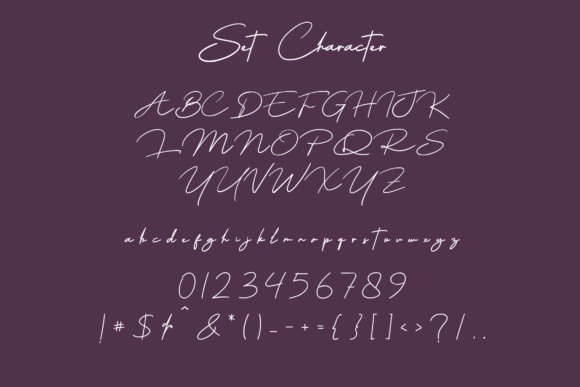 Set Character
ABCDEFGHIJK
LMNOPQRS
TUVWXYZ
abcdefghijklmnopqrstuvwxyz
0123456789
!#$%^&*()_-+={}[]<>?/..